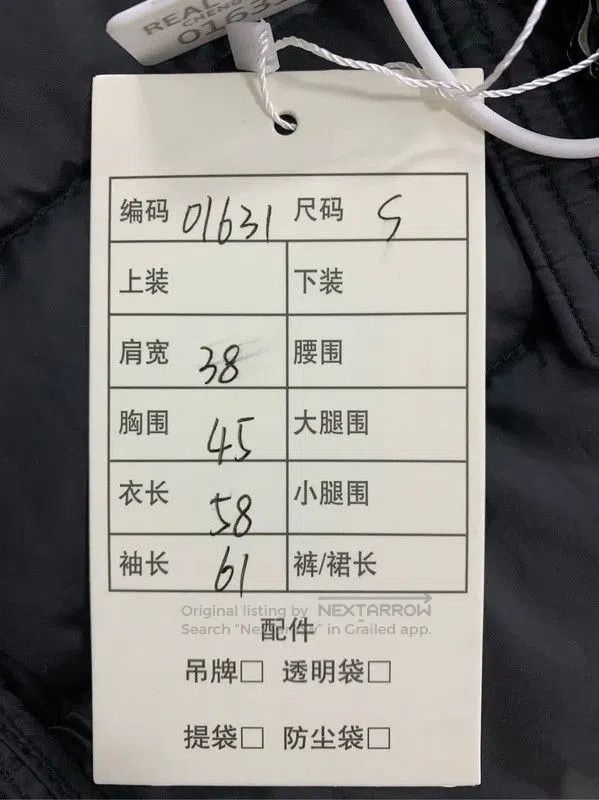 REAL
CHENG
01631
编码 01631 尺码 S
上装 下装
肩宽 38 腰围
胸围 45 大腿围
衣长 58 小腿围
袖长 61 裤/裙长
Original listing by NEXTARROW
Search "Nextarrow" in Grailed app.
配件
吊牌□ 透明袋□
提袋□ 防尘袋□